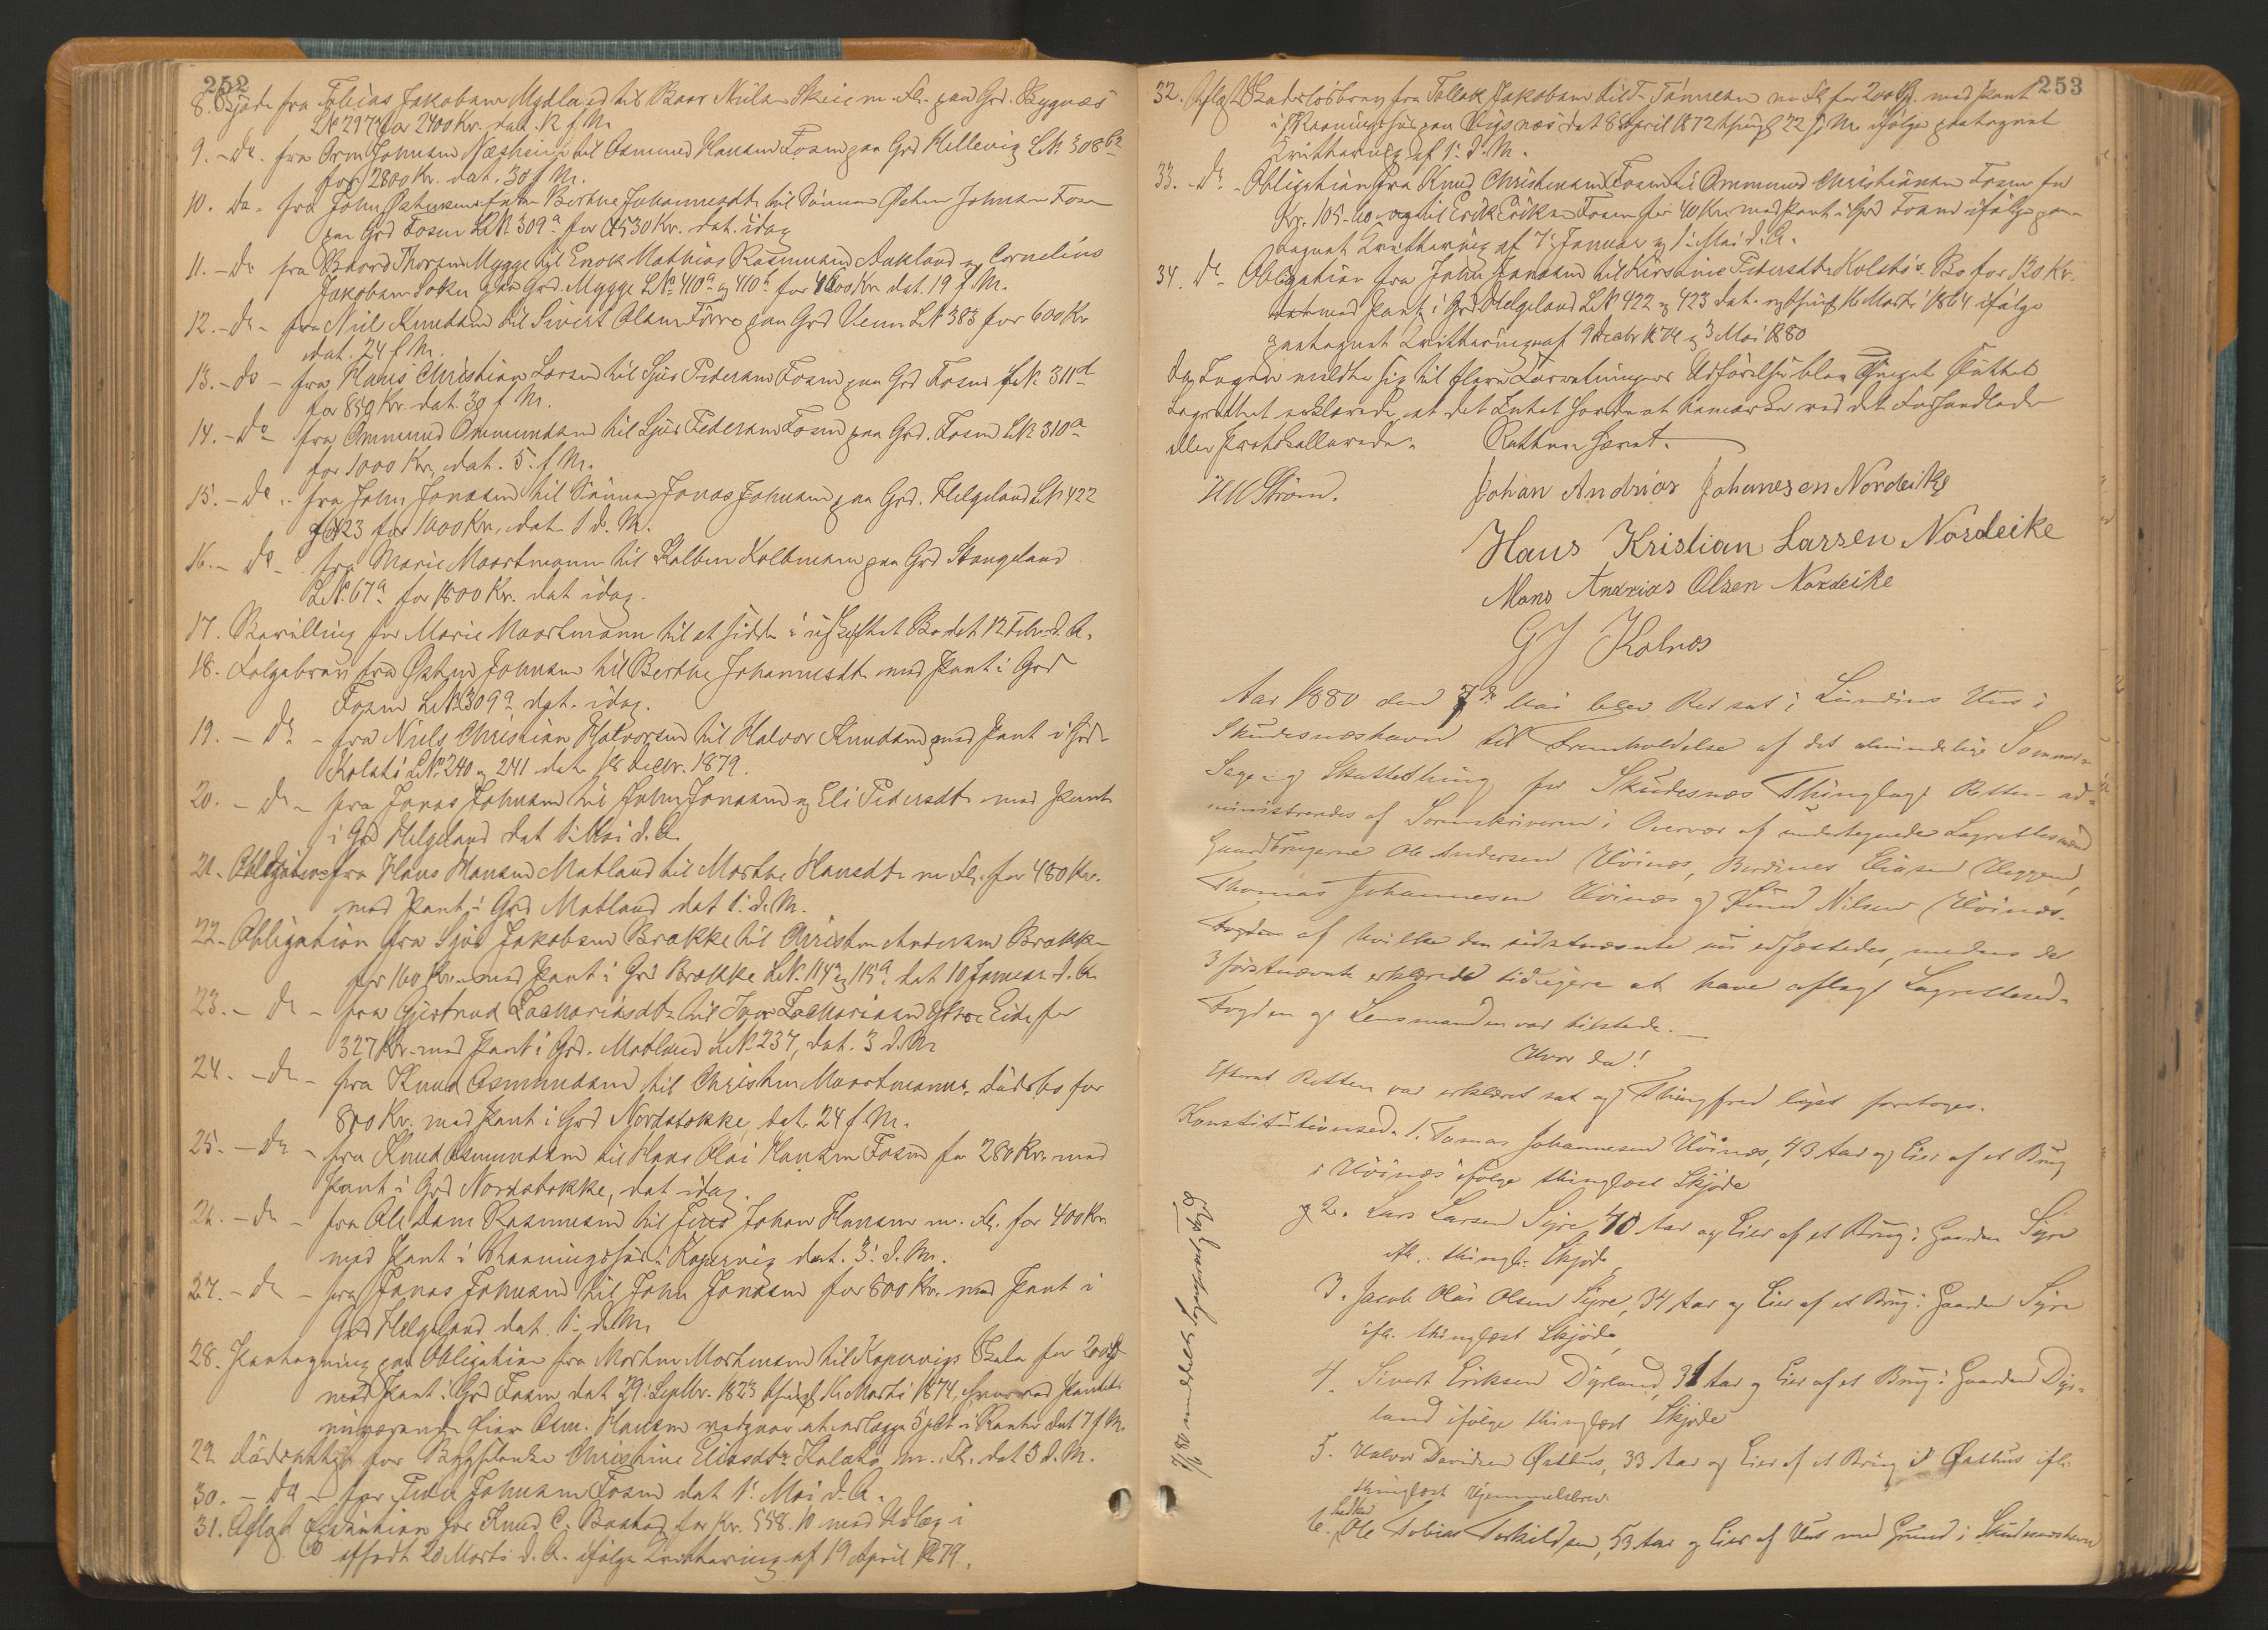 252
8. Skjøde fra Tobias Jakobsen Mydland til Baar Nilsen Skeie m. Fl. paa Grd. Bygnes
LN 297 for 2400 Kr. dat. 12 f. M.
9. - do. fra Orm Johnsen Næsheim til Osmund Hansen Fosen paa Grd Hellevig LN. 308
for 2800 Kr. dat. 30 f. M.
10. do. fra John Berthe Johannesdtr til Sønnen Østen Johnsen Fosen
paa Grd Fosen LN 309a for 530 Kr. dat. idag
11. - do fra Baard Thorsen Mygge til Enok Mathias Rasmussen Aukland og Cornelius
Jakobsen Soku paa Grd. Mygge LNo 410a og 410b for Kr. dat. 19 f. M.
12. - do - fra Niels Knudsen til Sivert Olsen Førre paa Grd LN 383 for 600 Kr
dat. 24 f M.
13. - do - fra Hans Christian Larsen til Sjur Pedersen Fosen paa Grd Fosen LN. 311d
for 850 Kr. dat. 30 f M.
14. - Do fra Ommund Ommundsen til Sjur Pedersen Fosen paa Grd. Fosen LN 310a
for 1000 Kr, dat. 5. f M.
15. - do - fra John Jonasen til Sønnen Jonas Johnsen paa Grd. Helgeland LN 422
og 423 for 1000 Kr, dat. 1 d. M.
16. - do - fra Marie Maartmann til Kolben Kolbensen paa Grd Stangeland
LN. 67a for 1800 Kr. dat idag.
17. Bevilling for Marie Maartmann til at sidde i uskiftet Bo dat 12 Febr d. A.
18. Folgebrev fra Østen Johnsen til Berthe Johannesdtr med Pant i Grd
Fosen LN 309a dat. idag.
19. - do - fra Niels Christian Halvorsen til Halvor Knudsen med Pant i Grd
Kolstø LN. 240 og 241 dat 18 Decbr. 1879.
20. - do - fra Jonas Johnsen til John Jonasen og Eli Pedersdtr med Pant
i Grd Helgeland dat 1. Mai d. A.
21. Obligation fra Hans Hansen Matland til Marthe Hansdtr m Fl. for 480 Kr.
med Pant i Grd Matland dat 1. d. M.
22. Obligation fra Sjur Jakobsen Brække til Christen Andersen Brække
for 160 Kr. med Pant i Grd Brække LN. 114a og 115a dat 10 Januar d. A.
23. - do - fra Gjertrud Zachariasdtr til Zachariasen Eide for
327 Kr. med Pant i Grd. Matland LN. 237, dat. 3 d. M
24. - do - fra Knud Osmundsen til Christen Maartmanns Dødsbo for
800 Kr. med Pant i Grd Nordstokke dat. 24 f. M.
25. - do - fra Knud Osmundsen til Hans Olai Hansen Fosen for 280 Kr. med
Pant i Grd Nordstokke, dat idag.
26. - do - fra Ole Rasmussen til Johan Hansen m. Fl. for 400 Kr.
med Pant i Vaaningshus i Kopervig dat. 3. d. M.
27. - do - fra Jonas Johnsen til John Jonasen for 800 Kr. med Pant i
Grd Helgeland dat. 1. d. M.
28. Paategning paa Obligation fra Morten Mortensen til Kopervigs Skole for 200
med Pant i Grd Fosen, dat 29. Septbr. 1823 16 Marts 1874, hvorved Pantets
nuværende Eier Osm. Hansen vedgaar at erlægge 5 pCt i Rente dat 7 f M.
29. Christine Eliasdtr Kolstø m. Fl. dat 3 d. M.
30. - do - for Johnsen Fosen dat 1. Mai d. A.
31. Aflæst for Knud C. Baastad for Kr. 558.10 med Udlæg i
20 Marts d. A. ifølge Kvittering af 19 April 1879.
253
32. Aflæst Skadesløsbrev fra Tollak Jakobsen til T. Tønnesen m Fl for 200 med Pant
i Vaaningshus paa Vigsnæs dat 8 April 1872 22 s. M. ifølge paategnet
Kvittering af 1. d. M.
33. - do - Obligation fra Knud Christensen Fosen til Ommund Christiansen Fosen for
Kr. 105.40 og til Erik Eriksen Fosen for 40 Kr. med Pant i Grd Fosen ifølge paa-
tegnet Kvittering af 7. Januar og 1. Mai d. A.
34. do - Obligation fra John Jonasen til Kirstine Pedersdtr Kolstø's Bo for 120 Kr.
med Pant i Grd Helgeland LN 422 og 423 dat. og 16 Marts 1864 ifølge
paategnet Kvittering af 9 Decbr 1874 og 3 Mai 1880
Da Ingen meldte sig til flere Forretningers Udførelse blev Thinget sluttet
Lagrettet erklærede, at det Intet havde at bemærke ved det Forhandlede
eller Protokollerede. Retten hævet.
Strøm.
Johan Andrias Johanesen Nordeike
Hans Kristian Larsen Nordeike
Mons Andrias Olsen Nordeike
G J Kolnes
Aar 1880 den 7de Mai blev Ret sat i Lundins Hus i
Skudesneshavn til Fremholdelse af det almindelige Sommer-
Sage- og Skattething for Skudesnæs Thinglag. Retten ad-
ministreredes af Sorenskriveren i Overvær af undertegnede Lagrettesmænd
Gaardbrugerne Ole Andersen Hóinæs, Berdines Eliasen Heggem,
Thomas Johannesen Hóinæs og Knud Nilsen Hóinæs.
af hvilke den sidstnævnte nu edfæstedes, medens de
3 førstnævnte erklærede tidligere at have aflagt Lagrettesed.
Fogden og Lensmanden var tilstede.
Hvor da!
Efterat Retten var erklæret sat og Thingfred lyst foretoges.
Konstitutionsed. 1. Tomas Johannesen Hóinæs, 43 Aar og Eier af et Brug
i Hóinæs ifølge thinglæst Skjøde
og 2. Lars Larsen Syre, 40 Aar og Eier af et Brug i Gaarden Syre
ifl. thingl. Skjøde
3. Jacob Olai Olsen Syre, 34 Aar og Eier af et Brug i Gaarden Syre
ifl. thinglæst Skjøde
4. Sivert Eriksen Dyrland, 31 Aar og Eier af et Brug i Gaarden Dyr-
land ifølge thinglæst Skjøde
5. Halvor Davidsen Østhus, 33 Aar og Eier af et Brug i Østhus ifl.
thinglæst Hjemmelsbrev.
6. Ole Tobias Torkildsen, 53 Aar og Eier af Hus med Grund i Skudesneshavn